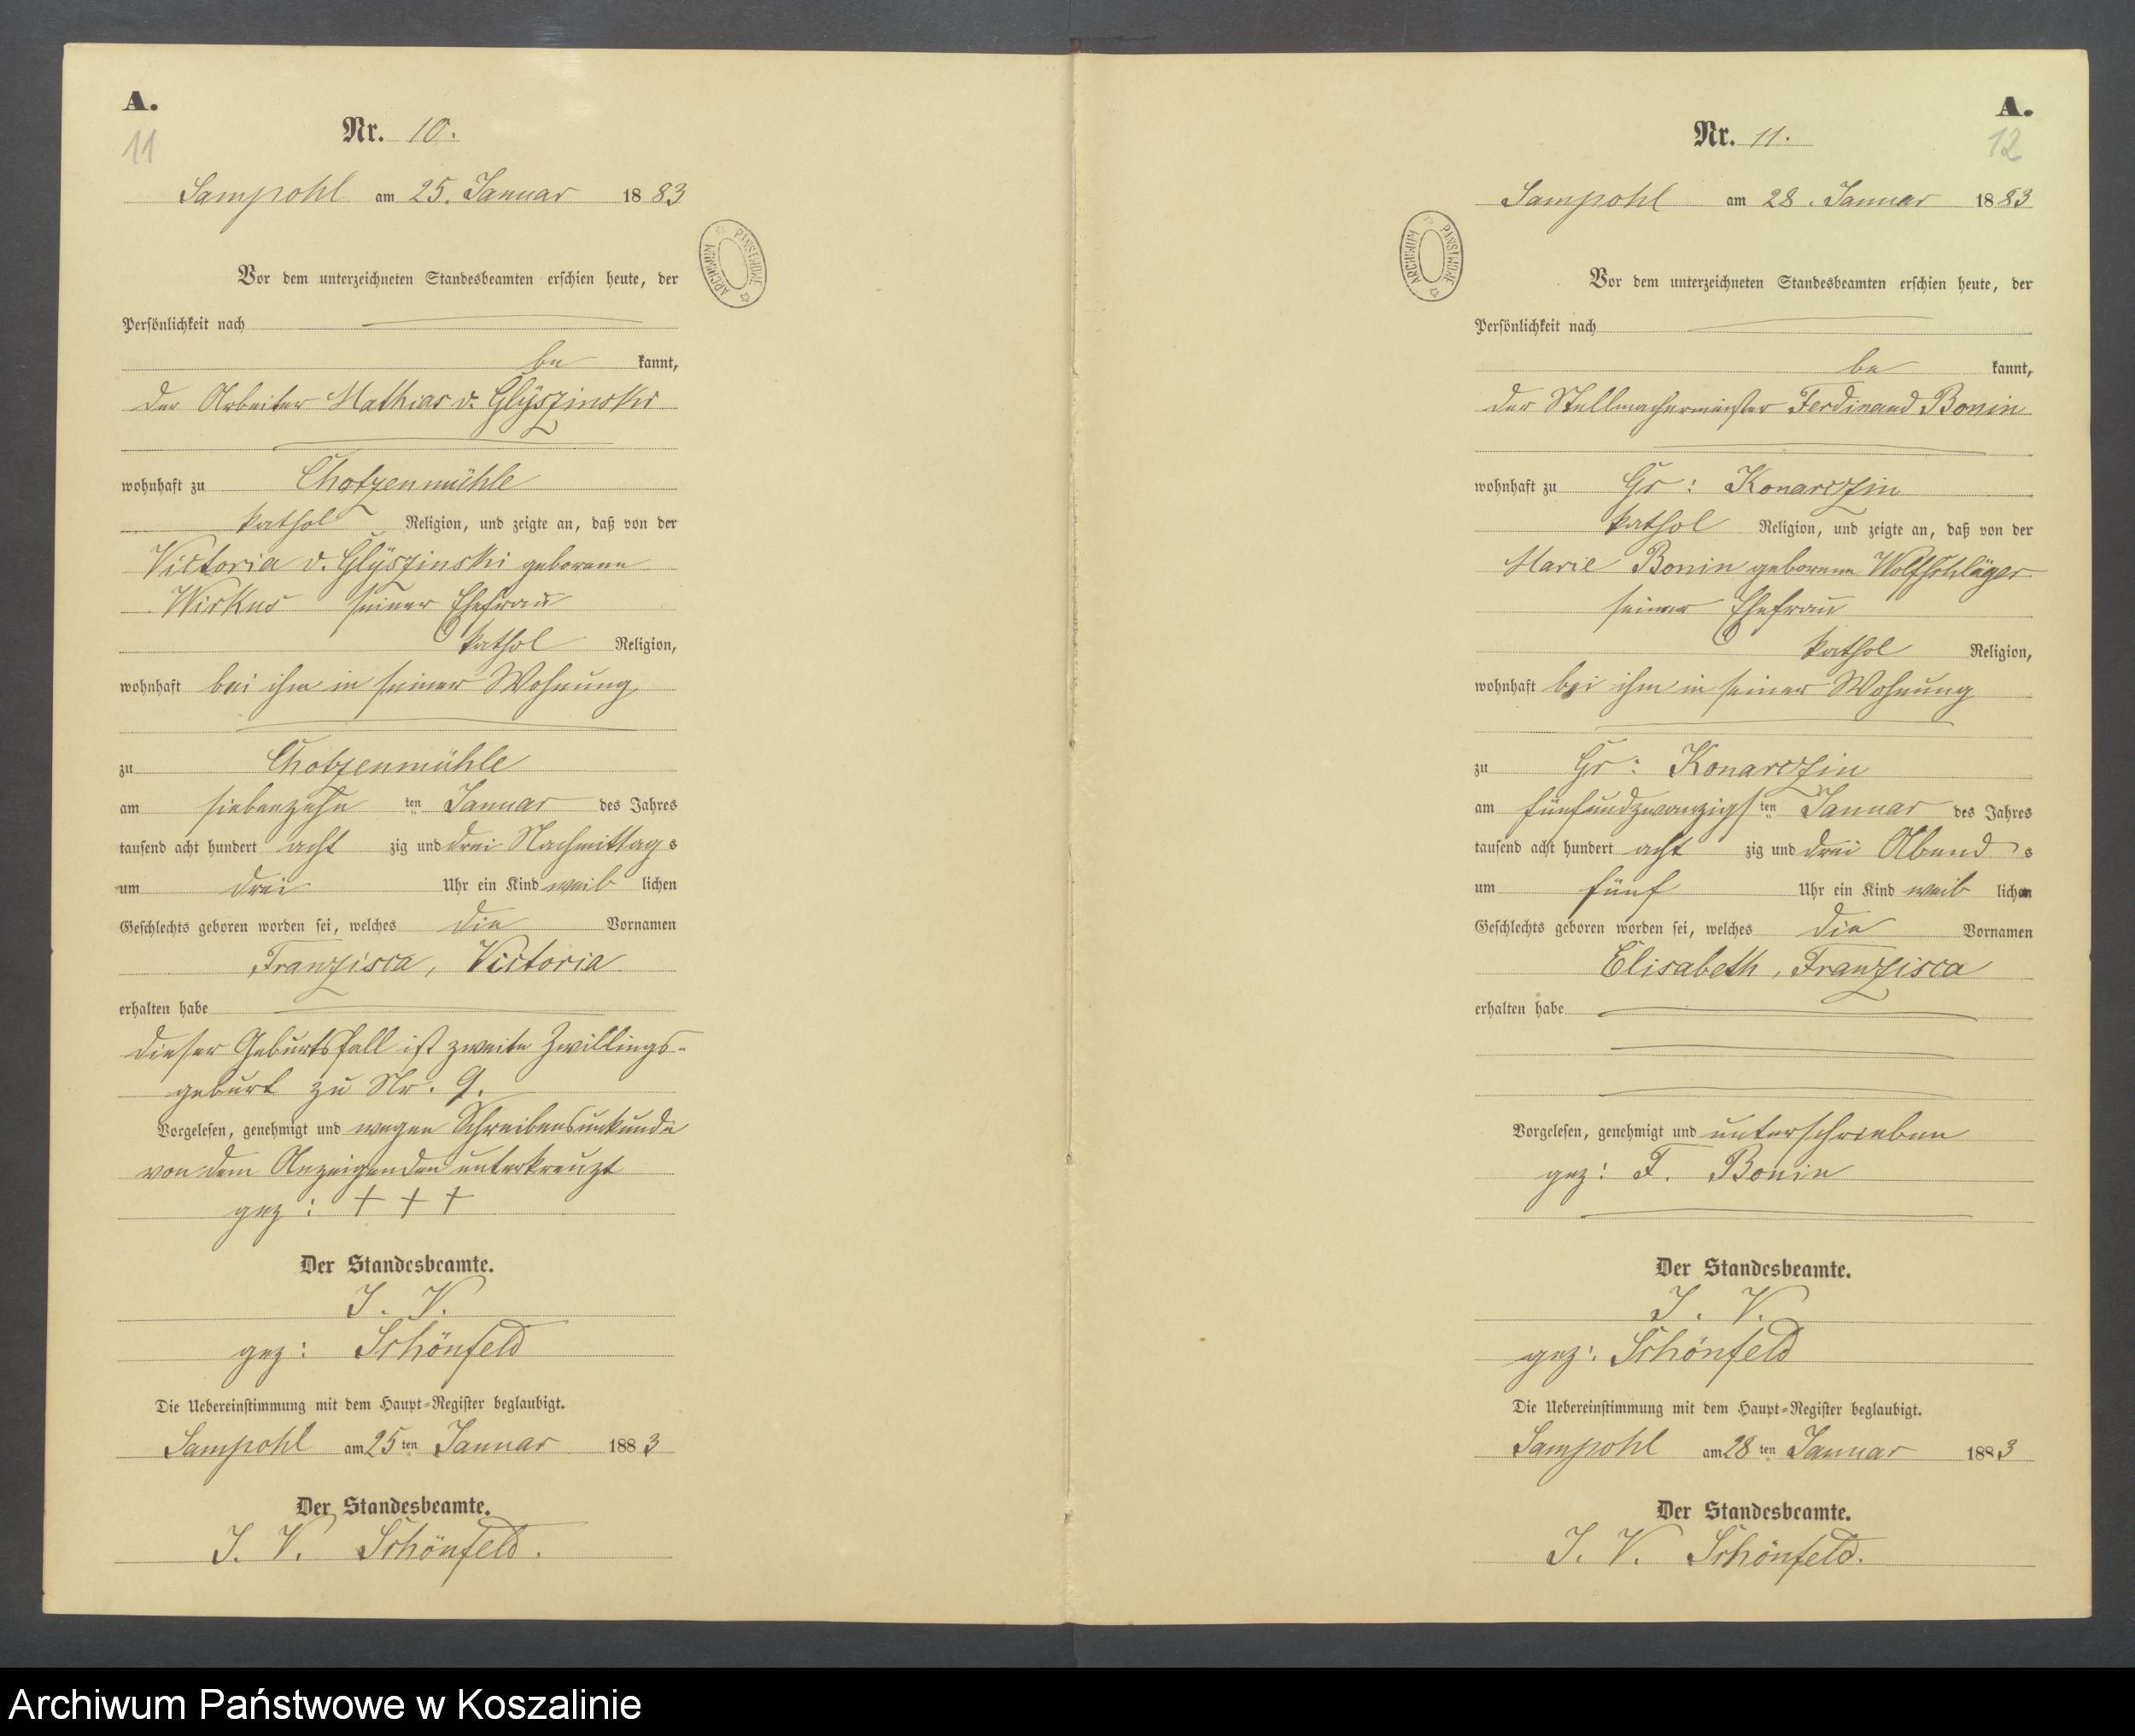 A.
11
Nr. 10.
Sampohl am 25. Januar 1883
Vor dem unterzeichneten Standesbeamten erschien heute, der
Persönlichkeit nach
be kannt,
der Arbeiter Mathias v. Glÿszinski
wohnhaft zu Chotzenmühle
kathol Religion, und zeigte an, daß von der
Victoria v. Glÿszinski geborene
Wirkus seiner Ehefrau
kathol Religion,
wohnhaft bei ihm in seiner Wohnung
zu Chotzenmühle
am siebenzehn ten Januar des Jahres
tausend acht hundert acht zig und drei Nachmittag s
um drei Uhr ein Kind weib lichen
Geschlechts geboren worden sei, welches die Vornamen
Franzisca, Victoria
erhalten habe
dieser Geburtsfall ist zweite Zwillings-
geburt zu Nr. 9.
Vorgelesen, genehmigt und wegen Schreibensunkunde
von dem Anzeigenden unterkreuzt
gez: + + +
Der Standesbeamte.
J. V.
gez: Schönfeld
Die Uebereinstimmung mit dem Haupt-Register beglaubigt.
Sampohl am 25 ten Januar 1883
Der Standesbeamte.
J. V. Schönfeld.
ARCHIWUM PAŃSTWOWE
A.
12
Nr. 11.
Sampohl am 28. Januar 1883
Vor dem unterzeichneten Standesbeamten erschien heute, der
Persönlichkeit nach
be kannt,
der Stellmachermeister Ferdinand Bonin
wohnhaft zu Gr: Konarczin
kathol Religion, und zeigte an, daß von der
Marie Bonin geborene Wolfschläger
seiner Ehefrau
kathol Religion,
wohnhaft bei ihm in seiner Wohnung
zu Gr: Konarczin
am fünfundzwanzigs ten Januar des Jahres
tausend acht hundert acht zig und drei Abend s
um fünf Uhr ein Kind weib lichen
Geschlechts geboren worden sei, welches die Vornamen
Elisabeth, Franzisca
erhalten habe
Vorgelesen, genehmigt und unterschrieben
gez: F. Bonin
Der Standesbeamte.
J. V.
gez: Schönfeld
Die Uebereinstimmung mit dem Haupt-Register beglaubigt.
Sampohl am 28 ten Januar 1883
Der Standesbeamte.
J. V. Schönfeld.
ARCHIWUM PAŃSTWOWE
Archiwum Państwowe w Koszalinie